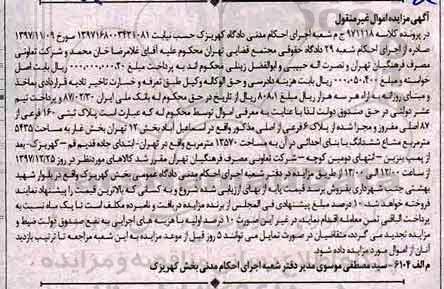 آگهی مزایده اموال غیرمنقول
در پرونده کلاسه ۱۷۱۱۱۸ ج م شعبه اجرای احکام مدنی دادگاه کهریزک حسب نیابت ۱۳۹۷۱۶۸۰۰۳۴۲۱۰۸۱ مورخ ۱۳۹۷/۱۱/۰۹
صادره از اجرای احکام شعبه ۲۹ دادگاه حقوقی مجتمع قضایی تهران محکوم علیه آقای غلامرضا خان محمد و شرکت تعاونی
مصرف فرهنگیان تهران و نصرت اله حبیبی و ابوالفضل زینلی محکوم اند به پرداخت مبلغ ۳۰,۰۰۰,۰۰۰,۰۰۰ ریال بابت اصل
خواسته و مبلغ ۵۰,۴۰۰,۰۰۰ ریال بابت هزینه دادرسی و حق الوکاله وکیل طبق تعرفه و خسارت تاخیر تادیه قراردادی بماخذ
و مبنای روزانه به ازاء هر سه هزار ریال ۸۰۸,۱ ریال از تاریخ در حق محکوم له بانک ملی ایران ۸۷/۰۲/۳۰ و پرداخت نیم
عشر دولتی در حق صندوق دولت لذا با عنایت به معرفی اموال توسط محکوم له که عبارت است پلاک ثبتی ۱۶۰ فرعی از
۸۷ اصلی مفروز و مجزا شده از پلاک ۶ فرعی از اصلی مذکور واقع در اسماعیل آباد بخش ۱۲ تهران بخش غار به مساحت ۵۴۳۵
مترمربع مشاع ششدانگ با بنای احداثی در آن به مساحت ۱۳۵۷۰ مترمربع واقع در تهران- ابتدای جاده قدیم قم - کهریزک- بعد
از پمپ بنزین - انتهای دومین کوچه - شرکت تعاونی مصرف فرهنگیان تهران مقرر شد کالاهای موردنظر در روز ۱۳۹۷/۱۲/۲۵
از ساعت ۱۲/۰۰ الی ۱۳/۰۰ از طریق مزایده در دفتر شعبه اجرای احکام مدنی دادگاه عمومی بخش کهریزک واقع در بلوار شهید
بهشتی جنب شهرداری بفروش برسد قیمت پایه از بهای ارزیابی شده شروع و به کسانی که بالاترین قیمت را پیشنهاد نمایند
فروخته خواهد شد، ۱۰ درصد مبلغ پیشنهادی فی المجلس از برنده مزایده دریافت و نامبرده مکلف است تا یک ماه نسبت به
پرداخت الباقی ثمن معامله اقدام نماید، در غیر این صورت ۱۰ درصد اولیه با هزینه های اجرایی به نفع صندوق دولت ضبط و
مزایده تجدید می گردد، متقاضیان در صورت تمایل می توانند ۵ روز قبل از موعد مزایده به این شعبه مراجعه تا ترتیب بازدید
آنان از اموال مورد مزایده داده شود.
م الف ۶۱۰۴ - سید مصطفی موسوی مدیر دفتر شعبه اجرای احکام مدنی بخش کهریزک